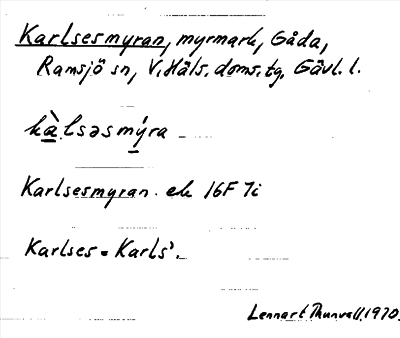 Karlsesmyran, myrmark, Gåda,
Ramsjö sn, V. Häls. doms. tg, Gävl. l.
kà̱.lsəsmý̱ra
Karlsesmyran. ek 16F 7i
Karlses = Karls'.
Lennart Thunvall, 1970.